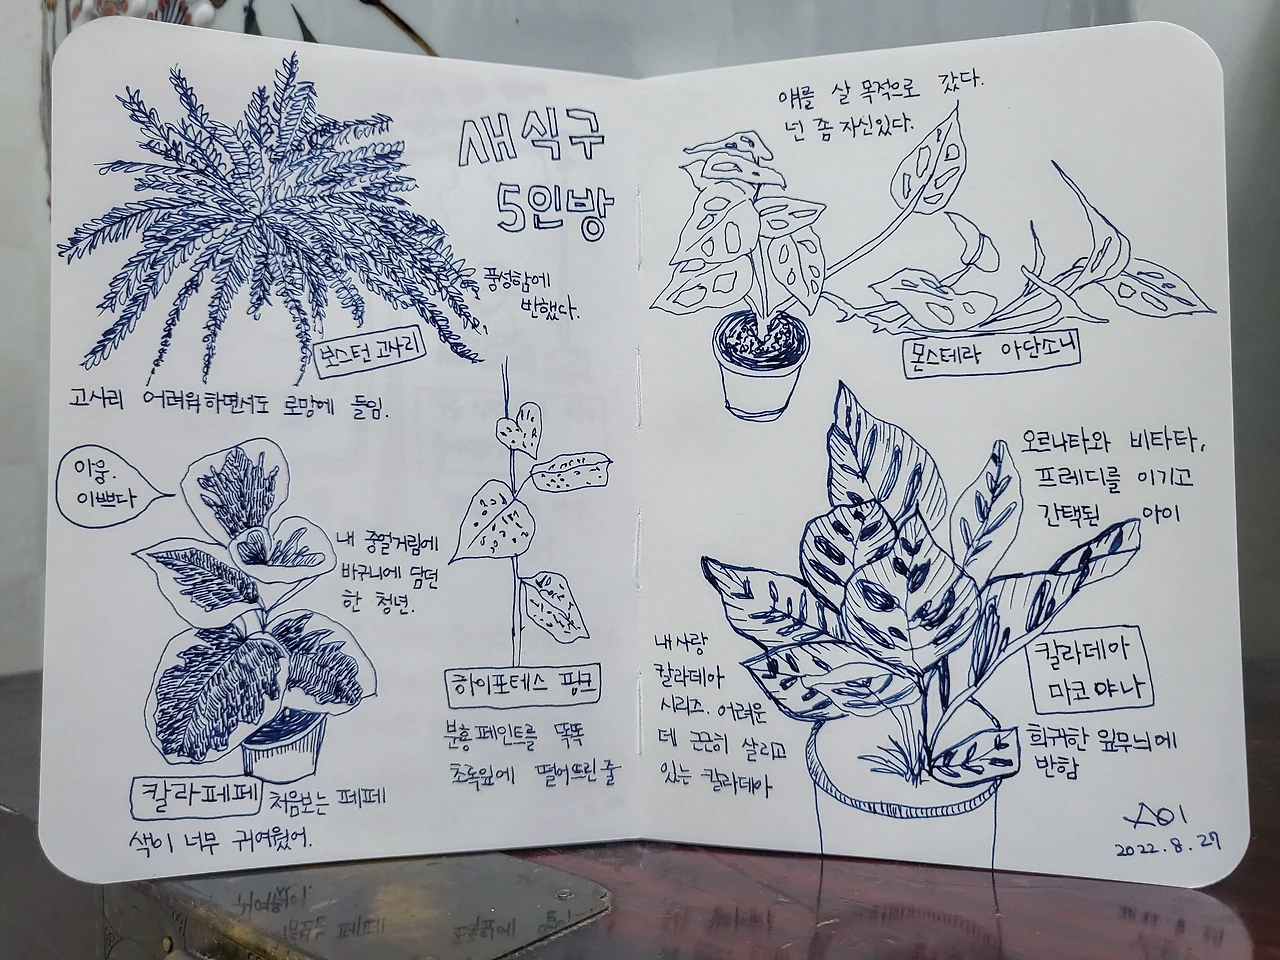 새식구
5인방
풍성함에
반했다.
보스턴고사리
고사리 어려워하면서도 로망에 들임.
아웅.
이쁘다
내 중얼거림에
바구니에 담던
한 청년.
칼라페페 처음보는 페페
색이 너무 귀여웠어.
하이포테스 핑크
분홍페인트를 똑똑
초록잎에 떨어뜨린 줄
얘를 살 목적으로 갔다.
넌 좀 자신있다.
몬스테라 아단소니
오르나타와 비타타,
프레디를 이기고
간택된 아이
내사랑
칼라데아
시리즈. 어려운
데 근근히 살리고
있는 칼라데아
칼라데아
마코야나
희귀한 잎무늬에
반함
AOI
2022.8.27